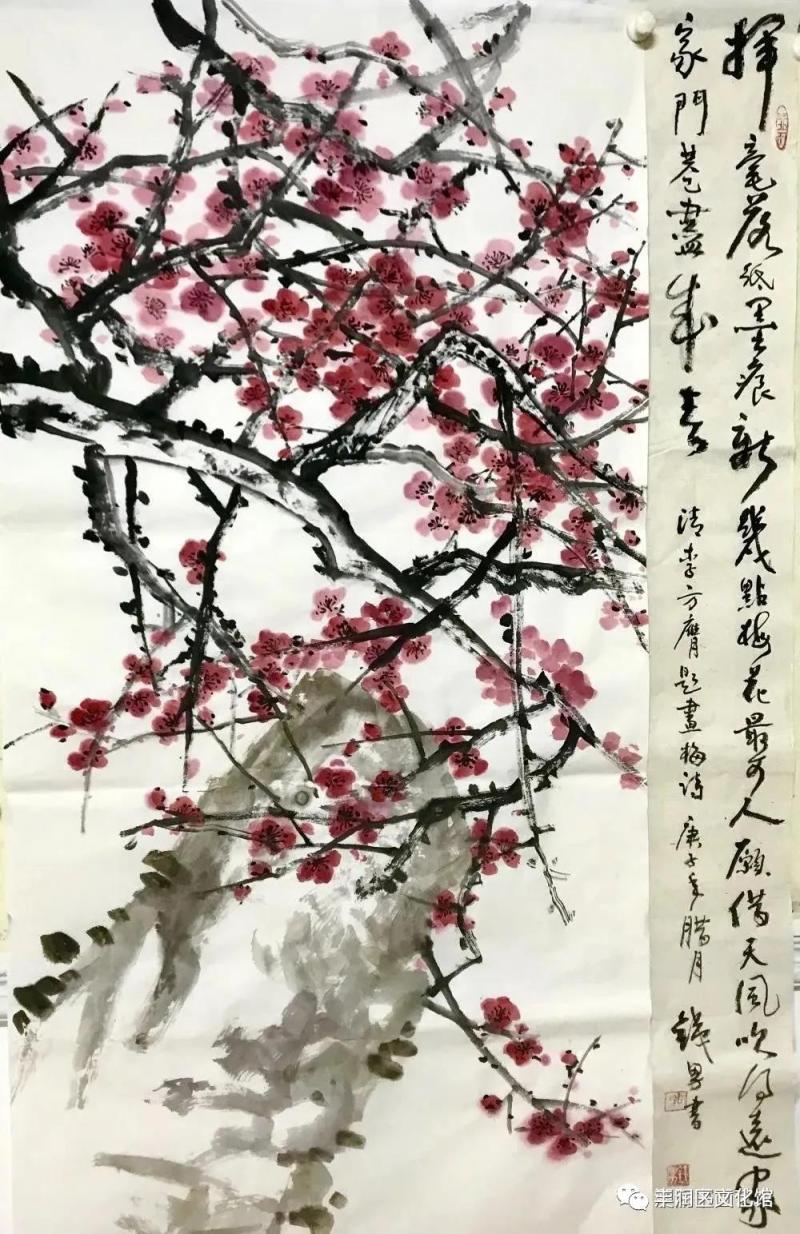 揮毫落紙墨痕新幾點梅花最可人願借天風吹得遠家
家門巷盡成春
清李方膺題畫梅詩 庚子年腊月 錢男書
丰润区文化馆